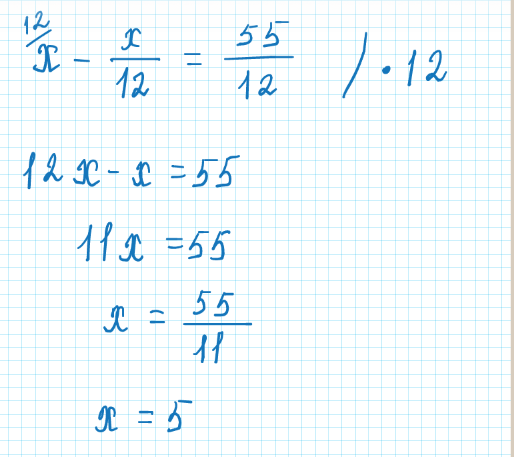 12/x - x/12 = 55/12 / · 12
12x - x = 55
11x = 55
x = 55/11
x = 5